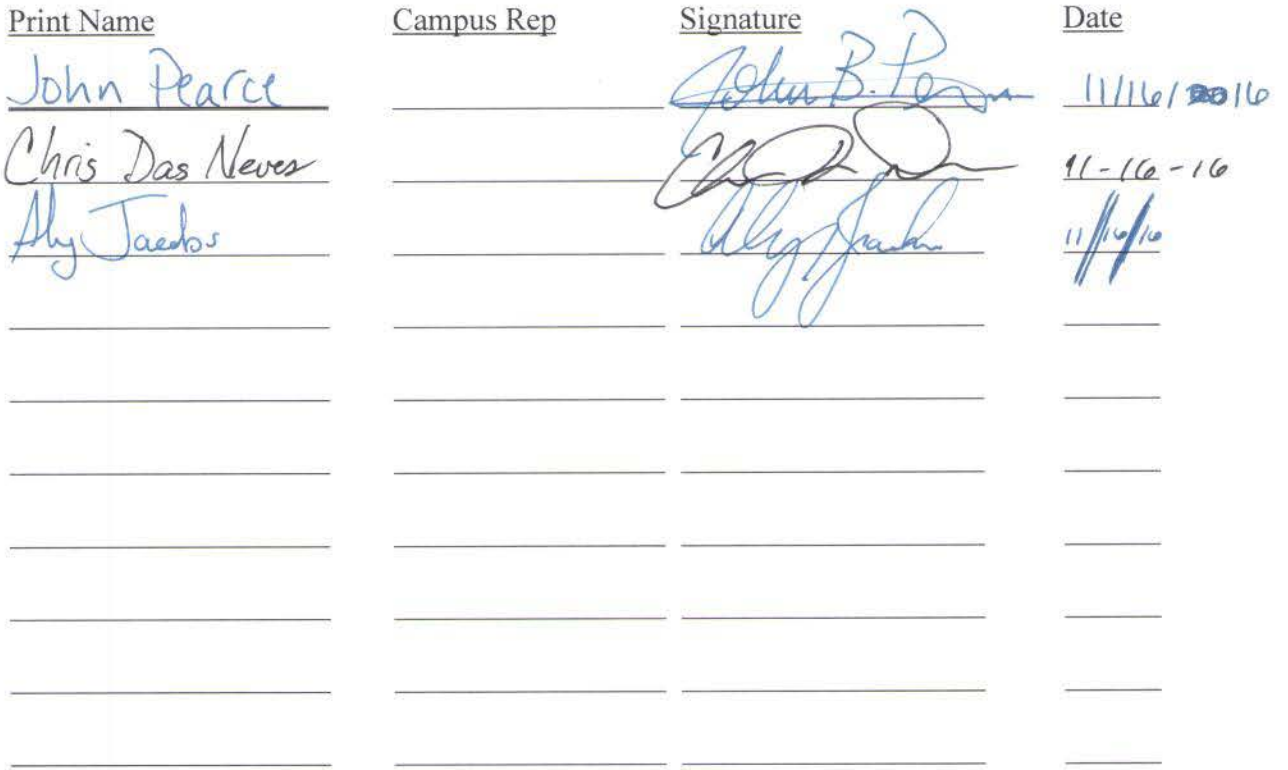 Print Name Campus Rep Signature Date
John Pearce John B. Pearce 11/16/2016
Chris Das Neves 11-16-16
Aly Jacobs Aly Jacobs 11/16/16